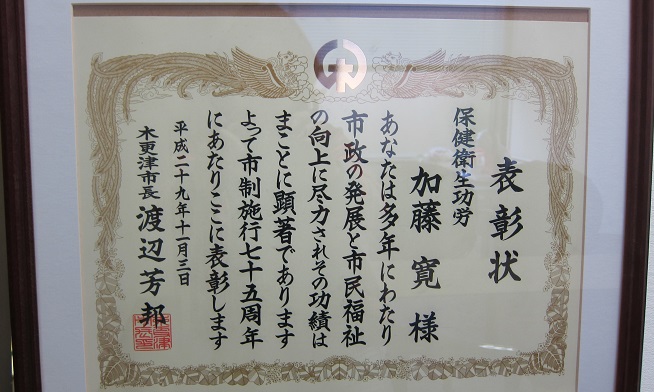 表彰状
保健衛生功労
加藤寛様
あなたは多年にわたり
市政の発展と市民福祉
の向上に尽力されその功績は
まことに顕著であります
よって市制施行七十五周年
にあたりここに表彰します
平成二十九年十一月三日
木更津市長 渡辺芳邦